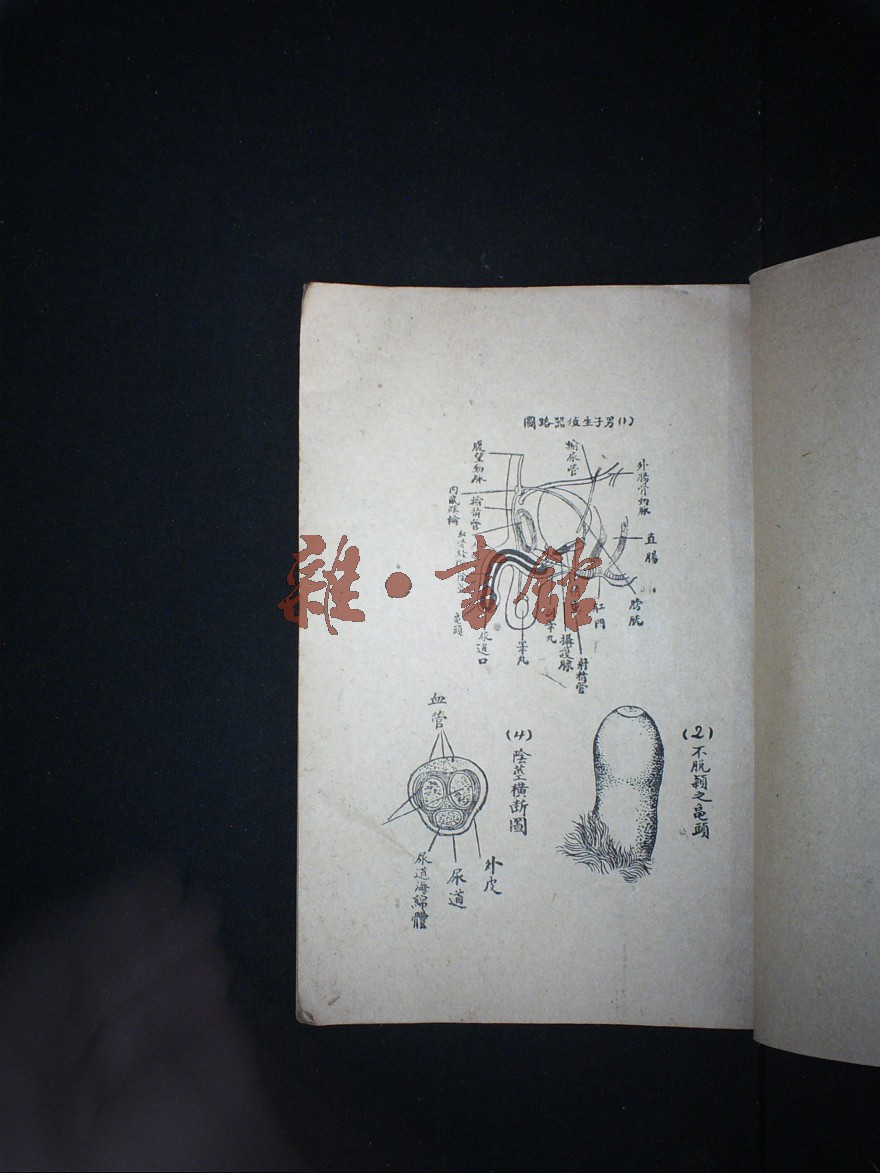 (1)男子生殖器路圖
外腸骨動脉
輸尿管
腹壁動脉
內鼠蹊輪
輸精管
直腸
膀胱
肛門
射精管
攝護腺
睾丸
尿道口
龜頭
雜·書館
(2)不脱穎之龜頭
(4)陰莖橫断圖
血管
外皮
尿道
尿道海綿體